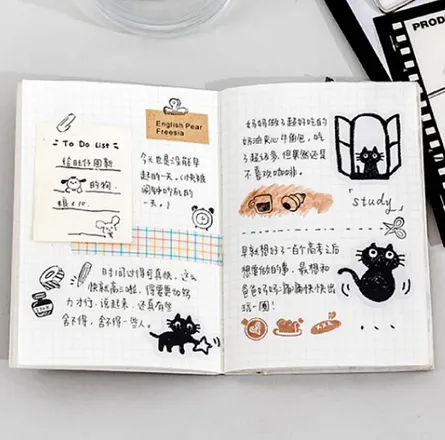 To Do List
给旺仔周勤
的狗
English Pear
Freesia
今天也是没能早
起的一天。(快被
闹钟吵死的
一天。)
时间过得可真快，这么
快就高三啦，得要更加努
力才行。说起来，还真有些
舍不得，舍不得一些人。
妈妈做了超好吃的
奶油夹心牛角包，吃
了超级多，但果然还是
不喜欢咖啡。
「study」
早就想好了一百个高考之后
想要做的事，最想和
爸爸妈妈痛痛快快出
玩一圈！
PROD